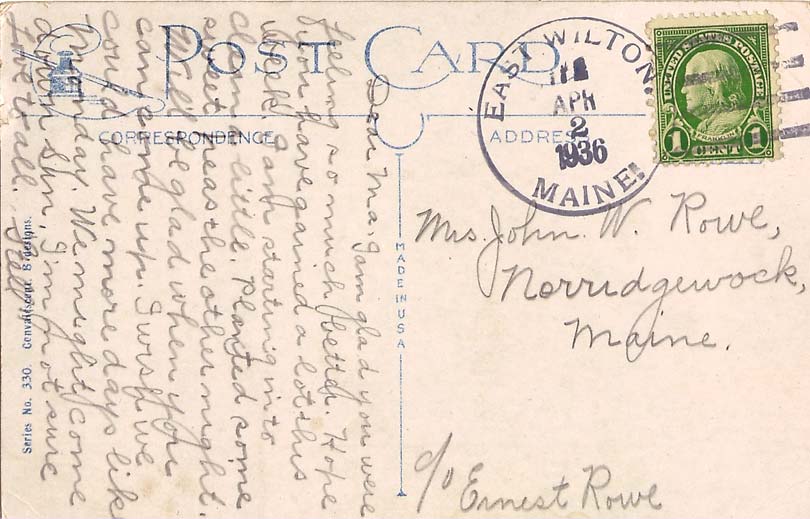 POST CARD
CORRESPONDENCE
ADDRESS
EAST WILTON,
APR
2
1936
MAINE.
UNITED STATES POSTAGE
FRANKLIN
1 CENT 1
Dear Ma, I am glad you were
feeling so much better. Hope
you have gained a lot this
week. I am starting in to
clean a little. Planted some
sweet peas the other night.
Will be glad when you
can come up. I wish we
could have more days like
Monday. We might come
down Sun, I'm not sure
Love to all.
MADE IN USA
Mrs. John. W. Rowe,
Norridgewock,
Maine.
c/o Ernest Rowe
Series No. 330. Convalescent. 8 designs.